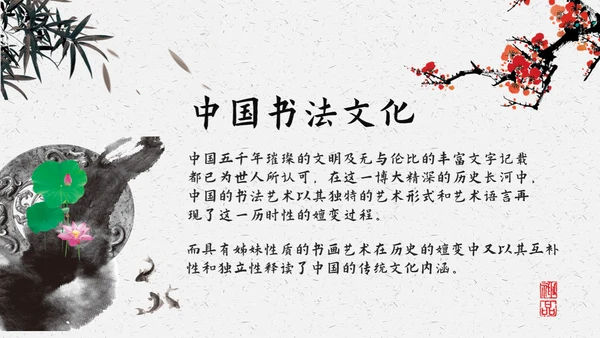 中国书法文化
中国五千年璀璨的文明及无与伦比的丰富文字记载
都已为世人所认可，在这一博大精深的历史长河中，
中国的书法艺术以其独特的艺术形式和艺术语言再
现了这一历时性的嬗变过程。
而具有姊妹性质的书画艺术在历史的嬗变中又以其互补
性和独立性释读了中国的传统文化内涵。